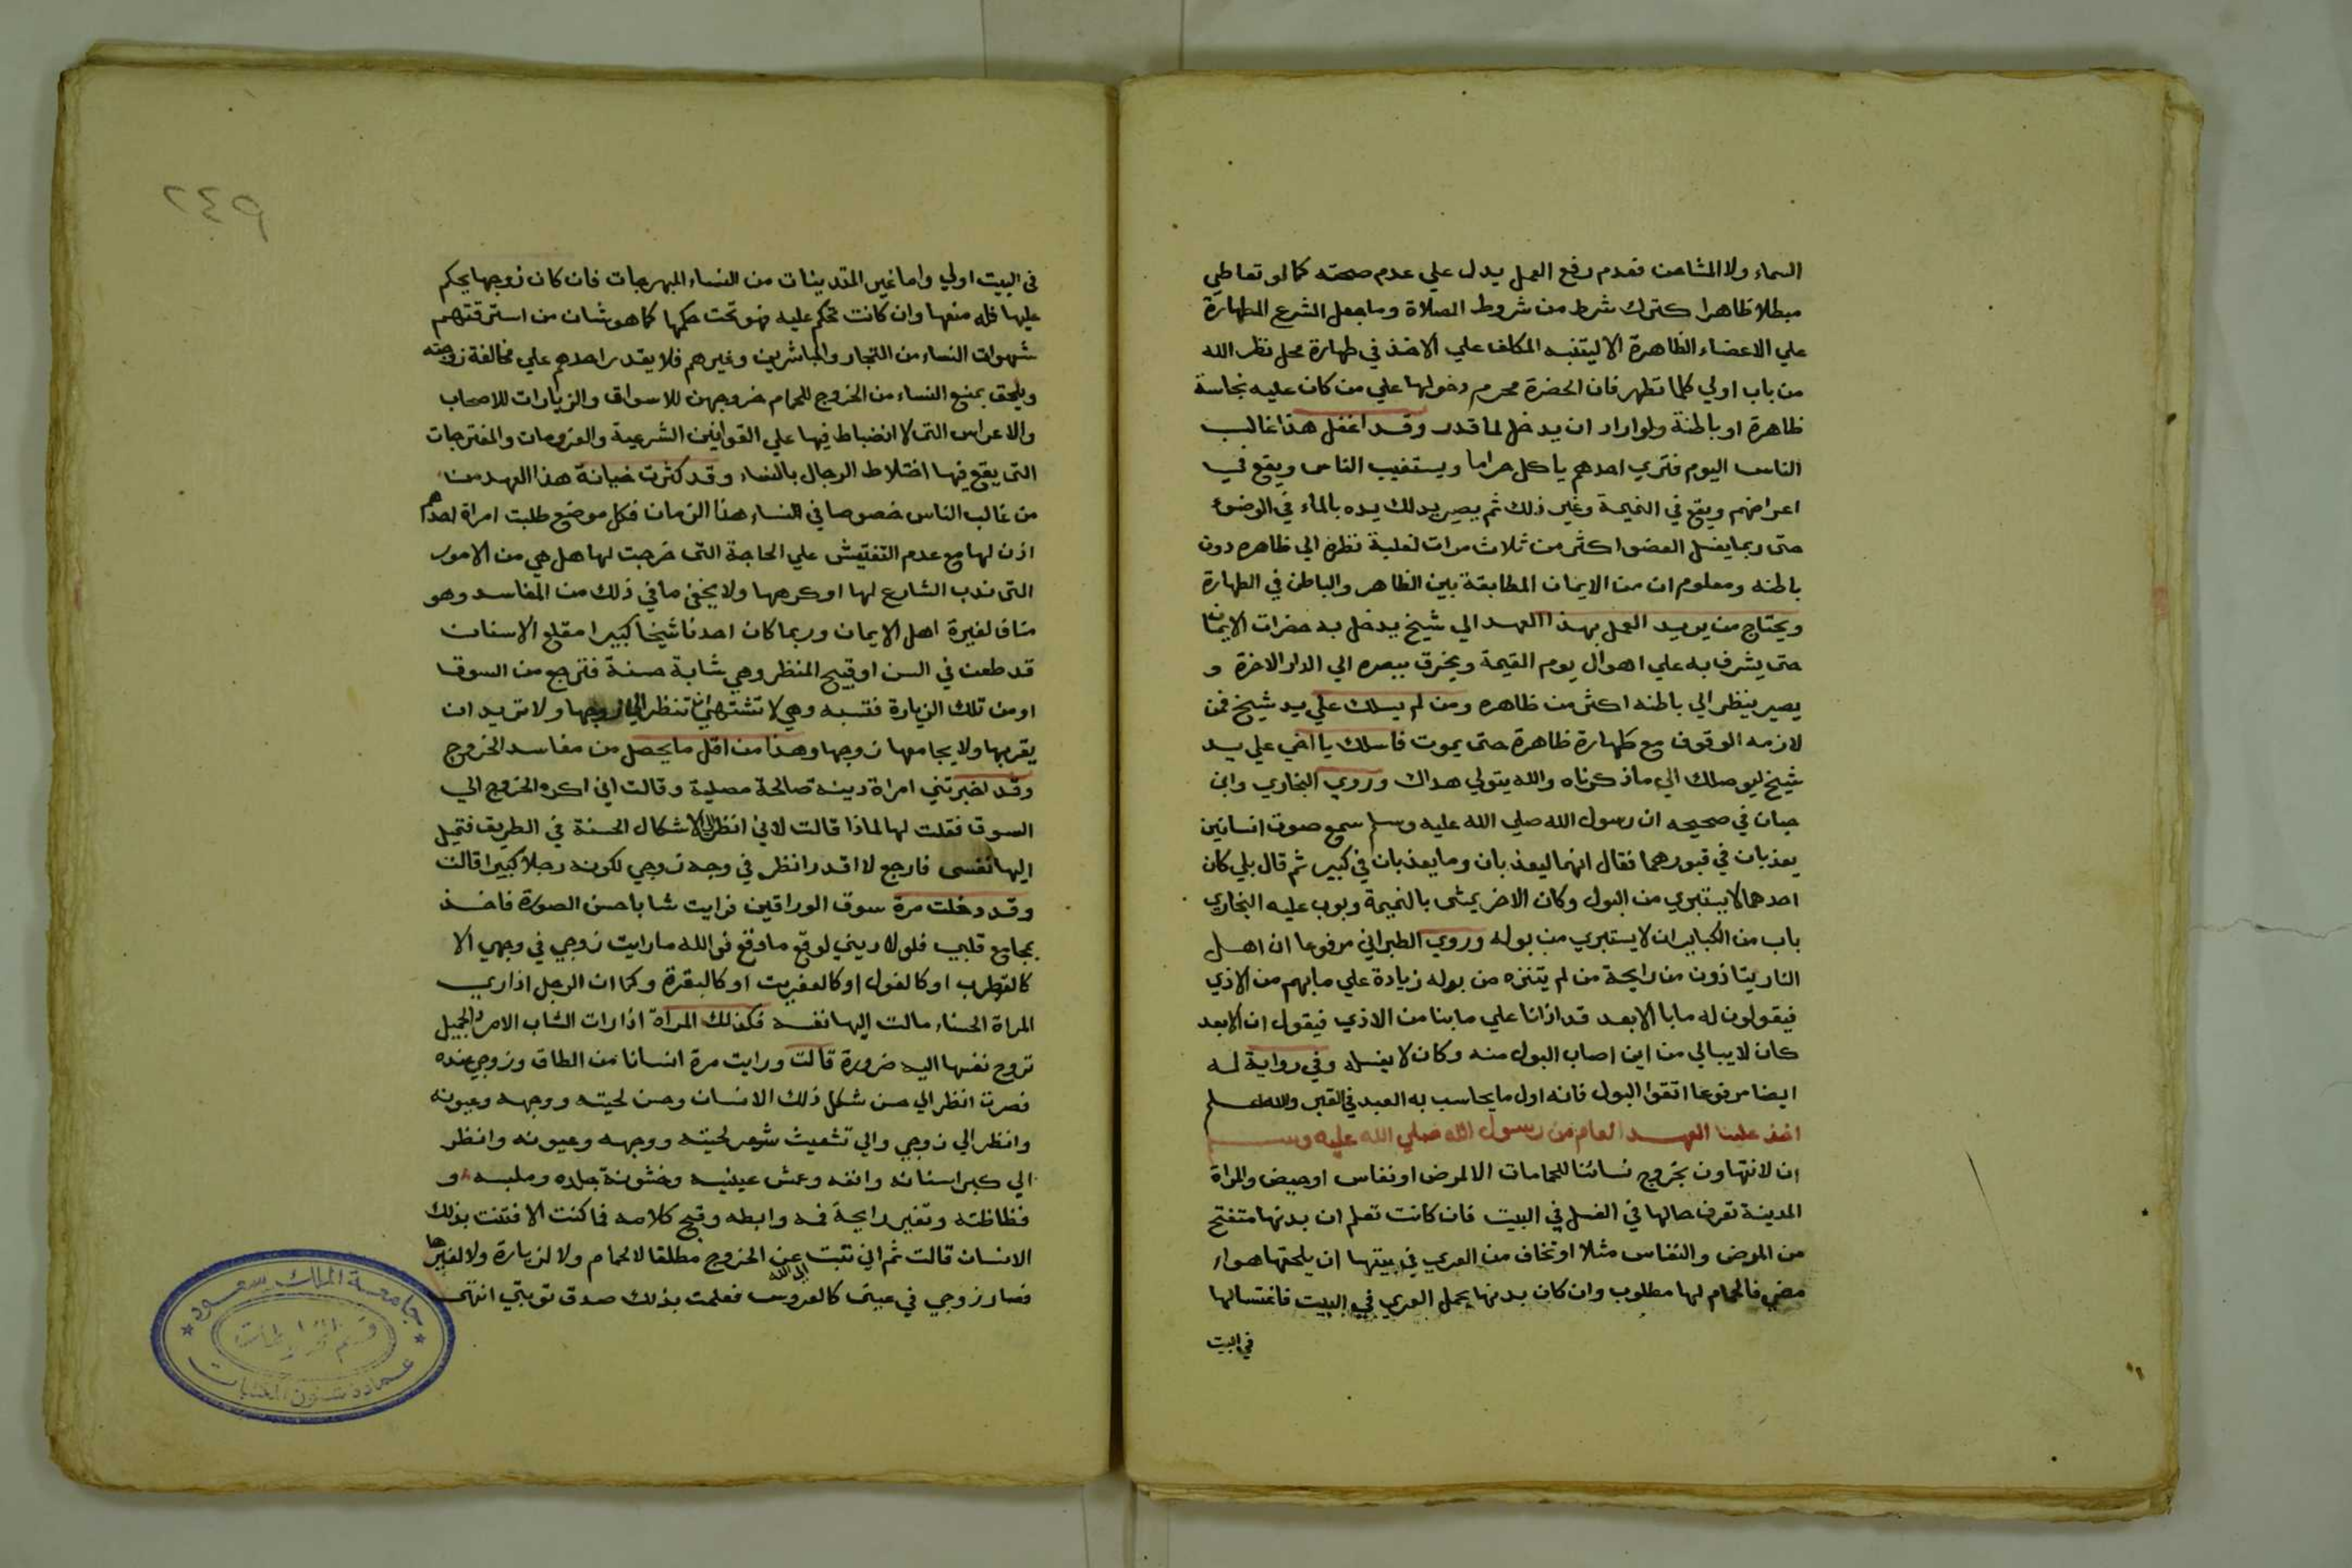 السماء ولا المشاحن فعدم رفع العمل يدل علي عدم صحته كما لو تعاطي
مبطلا ظاهرا كترك شرط من شروط الصلاة وما جعل الشرع الطهارة
علي الاعضاء الظاهرة الا ليتنبه المكلف علي الاخذ في طهارة محل نظر الله
من باب اولي كلما تطهر فان الحضرة محرم دخولها علي من كان عليه نجاسة
ظاهرة او باطنة ولو اراد ان يدخل لما قدر وقد اغفل هذا غالب
الناس اليوم فتري احدهم ياكل حراما ويستغيب الناس ويقع في
اعراضهم ويقع في النميمة وغير ذلك ثم يصير يدلك يده بالماء في الوضوء
حتي ربما يغسل العضو اكثر من ثلاث مرات لغلبة نظره الي ظاهره دون
باطنه ومعلوم ان من الايمان المطابقة بين الظاهر والباطن في الطهارة
ويحتاج من يريد العمل بهذا العهد الي شيخ يدخل به حضرات الايمان
حتي يشرف به علي اهوال يوم القيمة ويخرق ببصره الي الدار الاخرة و
يصير ينظر الي باطنه اكثر من ظاهره ومن لم يسلك علي يد شيخ فمن
لازمه الوقوف مع طهارة ظاهرة حتي يموت فاسلك يا اخي علي يد
شيخ ليوصلك الي ما ذكرناه والله يتولي هداك وروي البخاري وابن
حبان في صحيحه ان رسول الله صلي الله عليه وسلم سمع صوت انسانين
يعذبان في قبورهما فقال انهما ليعذبان وما يعذبان في كبير ثم قال بلي كان
احدهما لا يستبري من البول وكان الاخر يمشي بالنميمة وبوب عليه البخاري
باب من الكباير ان لا يستبري من بوله وروي الطبراني مرفوعا ان اهل
النار يتاذون من رايحة من لم يتنزه من بوله زيادة علي ما بهم من الاذي
فيقولون له ما بال الابعد قد اذانا علي ما بنا من الاذي فيقول ان الابعد
كان لا يبالي من اين اصاب البول منه وكان لا يغسله وفي رواية له
ايضا مرفوعا اتقوا البول فانه اول ما يحاسب به العبد في القبر والله اعلم
اخذ علينا العهد العام من رسول الله صلي الله عليه وسلم
ان لا نتهاون بخروج نسائنا للحمامات الا لمرض او نفاس او حيض والمراة
المدينة تعرف حالها في الغسل في البيت فان كانت تعلم ان بدنها متفتح
من المرض والنفاس مثلا او تخاف من العري في بيتها ان يلحقها هواء
مضر فالحمام لها مطلوب وان كان بدنها يحمل العري في البيت فاغتسالها
في البيت
٢٤٩
في البيت اولي واما غير المتدينات من النساء المبهرجات فان كان زوجها يحكم
عليها فله منعها وان كانت تحكم عليه فهو تحت حكمها كما هو شان من استرقتهم
شهوات النساء من التجار والمباشرين وغيرهم فلا يقدر احدهم علي مخالفة زوجته
ويلحق بمنع النساء من الخروج للحمام خروجهن للاسواق والزيارات للاصحاب
والاعراس التي لا انضباط فيها علي القوانين الشرعية والعزومات والمفترجات
التي يقع فيها اختلاط الرجال بالنساء وقد كثرت خيانة هذا العهد من
من غالب الناس خصوصا في النساء هذا الزمان فكل موضع طلبت امراة احدهم
اذن لها مع عدم التفتيش علي الحاجة التي خرجت لها هل هي من الامور
التي ندب الشارع لها او كرهها ولا يخفي ما في ذلك من المفاسد وهو
مناف لغيرة اهل الايمان وربما كان احدنا شيخا كبيرا مقلع الاسنان
قد طعن في السن او قبيح المنظر وهي شابة حسنة فترجع من السوق
او من تلك الزيارة فتسبه وهي لا تشتهي ان تنظر الي زوجها ولا تريد ان
يقربها ولا يجامعها زوجها وهذا من اقل ما يحصل من مفاسد الخروج
وقد اخبرتني امراة دينة صالحة مصلية وقالت اني اكره الخروج الي
السوق فقلت لها لماذا قالت لاني انظر الي الاشكال الحسنة في الطريق فتميل
اليها نفسي فارجع لا اقدر انظر في وجه زوجي لكونه رجلا كبيرا قالت
وقد دخلت مرة سوق الوراقين فرايت شابا حسن الصورة فاخذ
بمجامع قلبي فلولا ديني لوقع ما وقع فوالله ما رايت زوجي في وجهي الا
كالقطرب او كالغول او كالعفريت او كالبقرة وكما ان الرجل اذا راي
المراة الحسناء مالت اليها نفسه فكذلك المراة اذا رات الشاب الامرد الجميل
تروح نفسها اليه ضرورة قالت ورايت مرة انسانا من الطاق وزوجي عنده
فصرت انظر الي حسن شكل ذلك الانسان وحسن لحيته ووجهه وعيونه
وانظر الي زوجي والي تشعيث شعر لحيته ووجهه وعيونه وانظر
الي كبر اسنانه وانفه وعمش عينيه وخشونة جلده وملبسه و
فظاظته وتغير رايحة فمه وابطه وقبح كلامه فما كنت الا فتنت بذلك
الانسان قالت ثم اني تبت الي الله عن الخروج مطلقا لا لحمام ولا لزيارة ولا لغيرها
فصار زوجي في عيني كالعروس فعلمت بذلك صدق توبتي انتهي
جامعة الملك سعود
قسم المخطوطات
عمادة شئون المكتبات